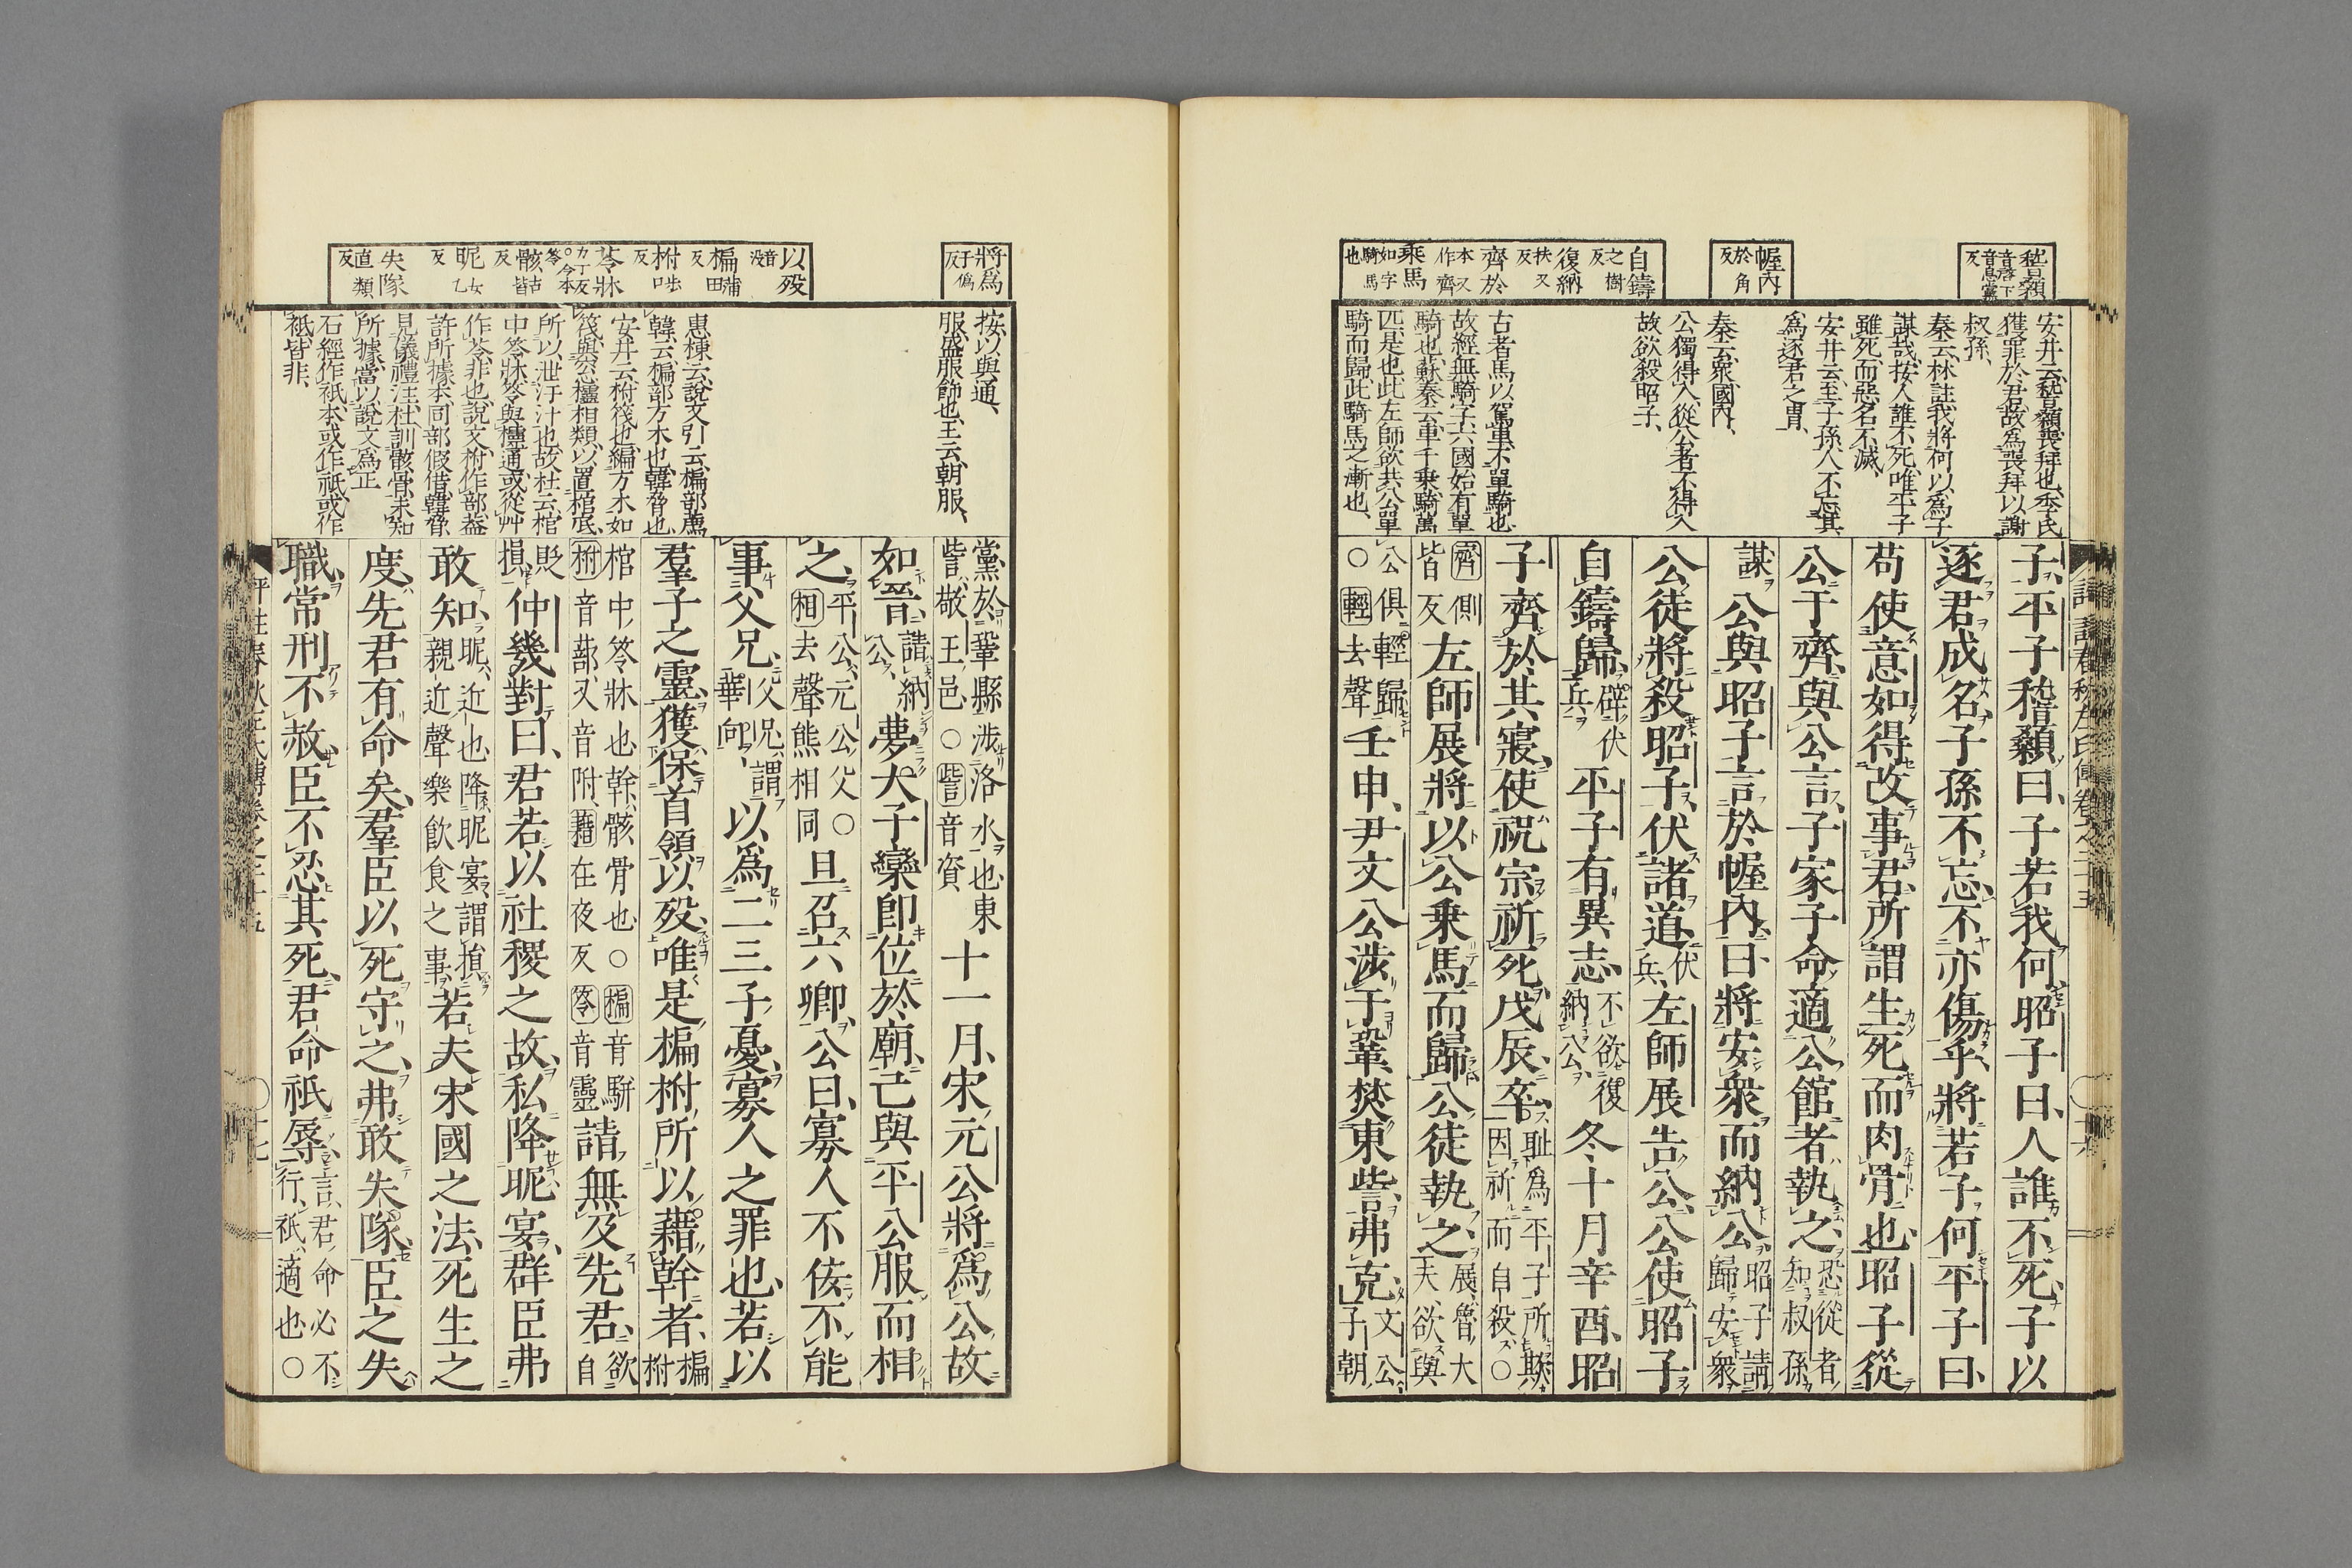 稽顙
音啓下
音息黨
反
幄內
於角
反
自鑄
之樹
反
復納
扶又
反
齊於
本又
作齊
乘馬
如字
騎馬
也
安井云稽顙喪拜也季氏
獲罪於君故爲喪拜以謝
叔孫、
秦云林註我將何以爲子
謀哉按人誰不死唯平子
雖死而惡名不滅、
安井云至子孫人不忘其
爲逐君之胄、
秦云衆國內、
公獨得入從公者不得入
故欲殺昭子、
古者馬以駕車不單騎也
故經無騎字六國始有單
騎也蘇秦云車千乘騎萬
匹是也此左師欲共公單
騎而歸此騎馬之漸也、
子平子稽顙曰子若我何昭子曰人誰不死子以
逐君成名子孫不忘不亦傷乎將若子何平子曰
苟使意如得改事君所謂生死而肉骨也昭子從
公于齊與公言子家子命適公館者執之恐從者
知叔孫
謀公與昭子言於幄內曰將安衆而納公昭子請
歸安衆
公徒將殺昭子伏諸道伏
兵左師展告公公使昭子
自鑄歸辟伏
兵平子有異志不欲復
納公冬十月辛酉昭
子齊於其寢使祝宗祈死戊辰卒恥爲平子所欺
因祈而自殺○
齊側
皆反左師展將以公乘馬而歸公徒執之展魯大
夫欲與
公俱輕歸
○輕去聲壬申尹文公涉于鞏焚東訾弗克文公
子朝
評註春秋左氏傳卷之二十五
將爲
于僞
反
以歿
音
沒
楄
蒲田
反
柎
步口
反
苓牀
力丁反
○今本
笭
骸
古皆
反
昵
女乙
反
失隊
直類
反
按以與通、
服盛服飾也王云朝服、
惠棟云說文引云楄部薦
韓云楄部方木也韓脅也
安井云柎筏也編方木如
筏與窓櫺相類以置棺底
所以泄汙汁也故杜云棺
中笭牀笭與櫺通或從艸
作苓非也說文柎作部蓋
許所據本同部假借韓脅
見儀禮注杜訓骸骨未知
所據當以說文爲正
石經作祇本或作祗或作
祗皆非、
黨於鞏縣涉洛水也東
訾敬王邑○訾音資十一月宋元公將爲公故
如晉請納
公夢大子欒卽位於廟己與平公服而相
之平公元公父○
相去聲熊相同旦召六卿公曰寡人不佞不能
事父兄父兄謂
華向以爲二三子憂寡人之罪也若以
羣子之靈獲保首領以歿唯是楄柎所以藉幹者楄
柎
棺中笭牀也幹骸骨也○楄音駢
柎音蔀又音附藉在夜反笭音靈請無及先君欲
自
貶
損仲幾對曰君若以社稷之故私降昵宴群臣弗
敢知昵近也降昵宴謂損
親近聲樂飲食之事若夫宋國之法死生之
度先君有命矣羣臣以死守之弗敢失隊臣之失
職常刑不赦臣不忍其死君命祇辱言君命必不
行祇適也○
評註春秋左氏傳卷之二十五
十七